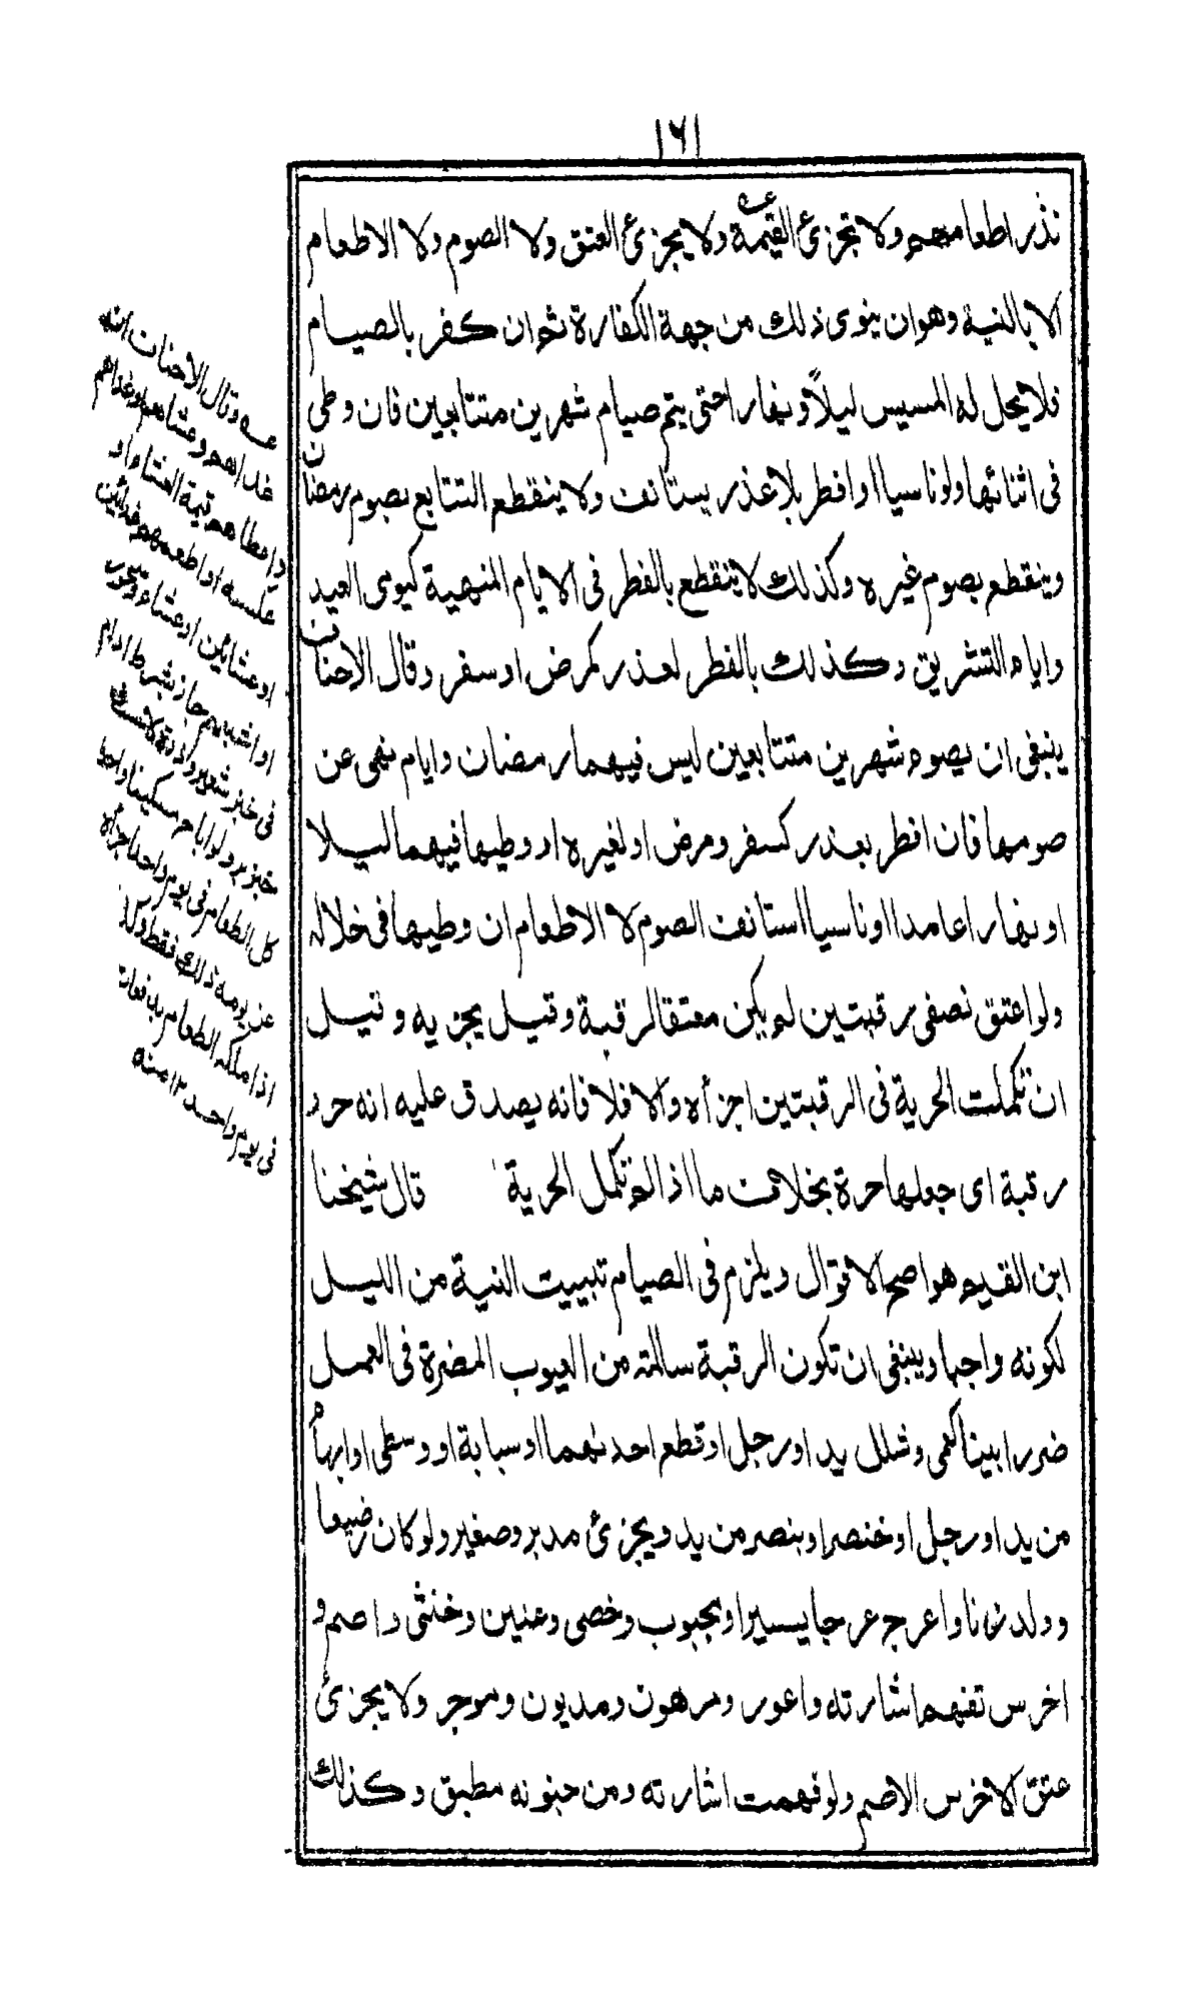 ١٦١
نذر اطعامهم ولا تجزئ القيمة عـه ولا يجزئ العتق ولا الصوم ولا الاطعام
الا بالنية وهو ان ينوى ذلك من جهة الكفارة ثم ان كفر بالصيام
فلا يحل له المسيس ليلاً ونهارا حتى يتم صيام شهرين متتابعين فان وطى
فى اثنائها ولو ناسيا او افطر بلا عذر يستانف ولا ينقطع التتابع بصوم رمضان
وينقطع بصوم غيره وكذلك لا ينقطع بالفطر فى الايام المنهية كيومى العيد
وايام التشريق وكذلك بالفطر لعذر كمرض او سفر وقال الاحناف
ينبغى ان يصوم شهرين متتابعين ليس فيهما رمضان وايام نهى عن
صومها فان افطر بعذر كسفر ومرض او لغيره او وطيها فيهما ليلا
او نهارا عامدا او ناسيا استانف الصوم لا الاطعام ان وطيها فى خلاله
ولو اعتق نصفى رقبتين لم يكن معتقا لرقبة وقيل يجزيه وقيل
ان تكملت الحرية فى الرقبتين اجزأه والا فلا فانه يصدق عليه انه حرر
رقبة اى جعلها حرة بخلاف ما اذا لم تكمل الحرية قال شيخنا
ابن القيم هو اصح الاقوال ويلزم فى الصيام تبييت النية من الليل
لكونه واجبا وينبغى ان تكون الرقبة سالمة من العيوب المضرة فى العمل
ضررا بينا كعمى وشلل يد او رجل او قطع احدىهما او سبابة او وسطى او ابهام
من يد او رجل او خنصر او بنصر من يد ويجزئ مدبر وصغير ولو كان رضيعا
وولد زنا واعرج عرجا يسيرا ومجبوب وخصى وعنين وخنثى واصم و
اخرس تفهم اشارته واعور ومرهون ومديون وموجر ولا يجزئ
عتق الاخرس الاصم ولو فهمت اشارته ومن جنونه مطبق وكذلك
عـه وقال الاحناف انه
غداهم وعشاهم او غداهم
واعطاهم قيمة العشاء او
عكسه او اطعمهم غدائين
او عشائين او عشاء وسحور
او اشبعهم جاز بشرط ادام
فى خبز شعير وذرة لا
خبز بر ولو اباح مسكينا واحدا
كل الطعام فى يوم واحد اجزأه
عن يومه ذلك فقط وكذا
اذا ملكه الطعام بدفعات
فى يوم واحد ١٢ منه